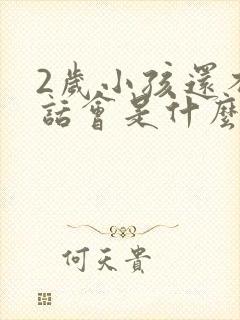 2歲小孩還不
話會是什麼
何天貴